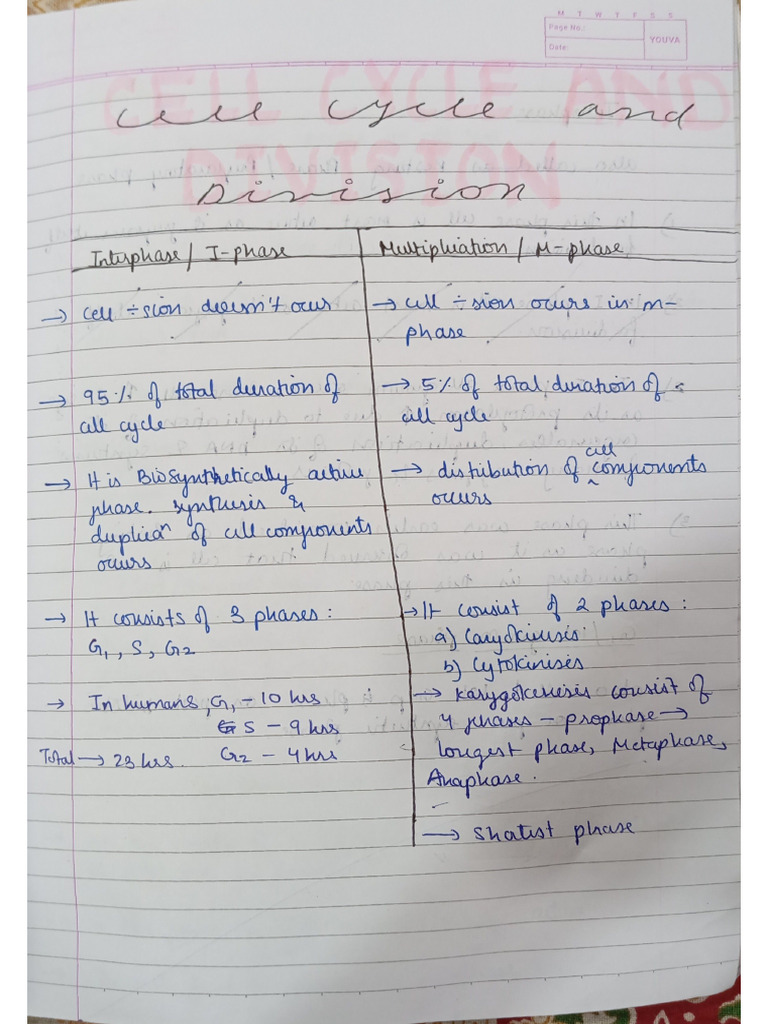 M T W T F S S
Page No.:
Date:
YOUVA
CELL CYCLE AND
DIVISION
Cell Cycle and
Division
Interphase / I-phase
→ Cell ÷sion doesn't ocur
→ 95% of total duration of
cell cycle
→ It is Biosynthetically active
phase. synthesis &
duplicaⁿ of cell components
occurs
→ It consists of 3 phases:
G₁, S, G2
→ In humans, G₁ - 10 hrs
S - 9 hrs
Total → 23 hrs. G2 - 4 hrs
Multipliation / M-phase
→ cell ÷sion occurs in m-
phase
→ 5% of total duration of
cell cycle
→ distribution of cell components
occurs
→ It consist of 2 phases:
a) Caryokinesis
b) Cytokinises
→ Karygokenesis consist of
4 phases - prophase →
longest phase, Metaphase,
Anaphase.
→ Shatist phase